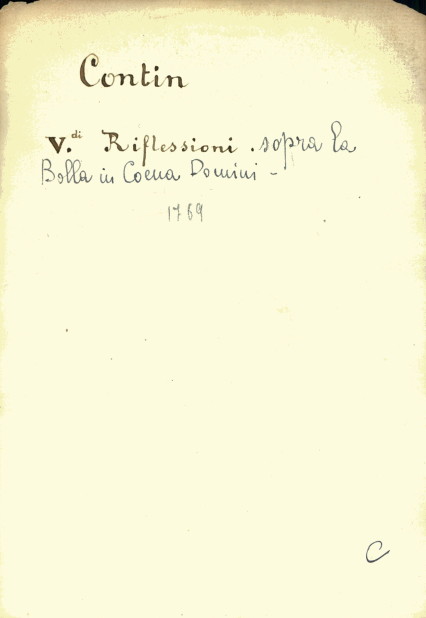 Contin
V.di Riflessioni . sopra la
Bolla in Coena Domini -
1769
C